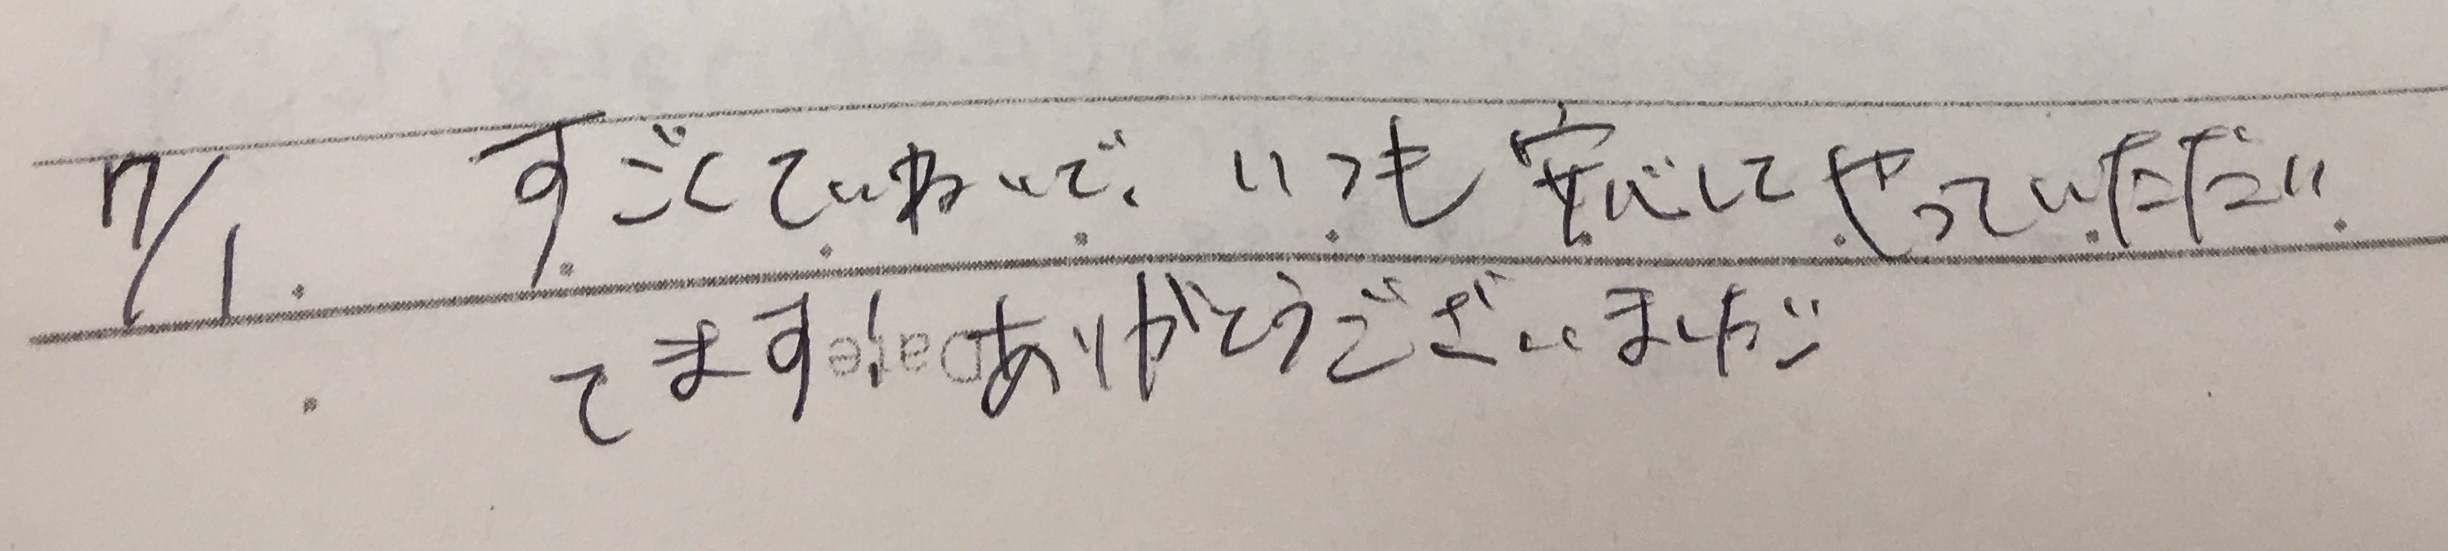 7/1. すごくていねいで、いつも安心してやっていただい
てます!ありがとうございました
Date